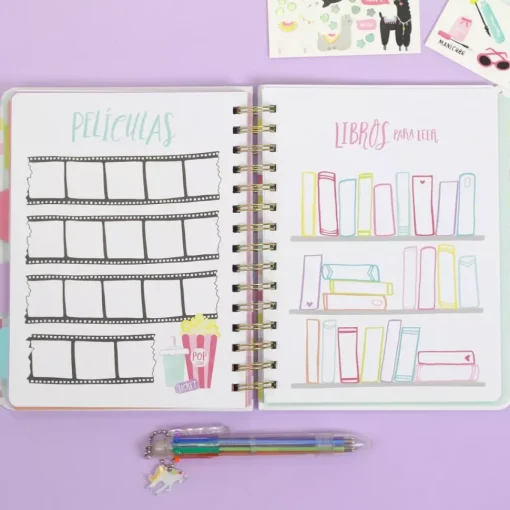 PELÍCULAS
LIBROS PARA LEER
POP
TICKET
MANICURE